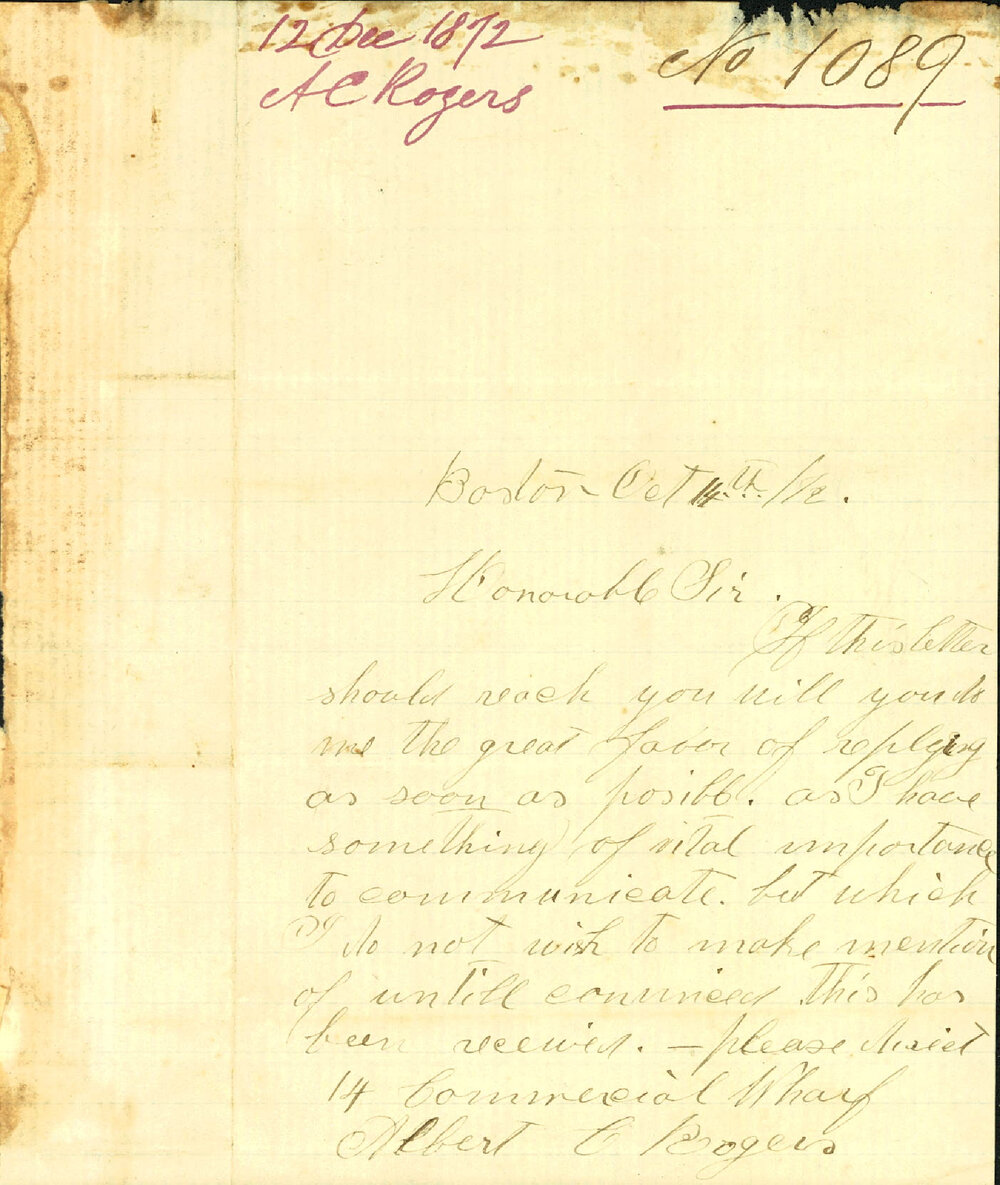 12 Dec 1872
A C Rogers
No 1089
Boston Oct 14th /72.
Honorable Sir.
If this letter
should reach you will you do
me the great favor of replying
as soon as posible. as I have
something of vital importance
to communicate. but which
I do not wish to make mention
of untill convinced this has
been received. — please direct
14 Commercial Wharf
Albert C Rogers